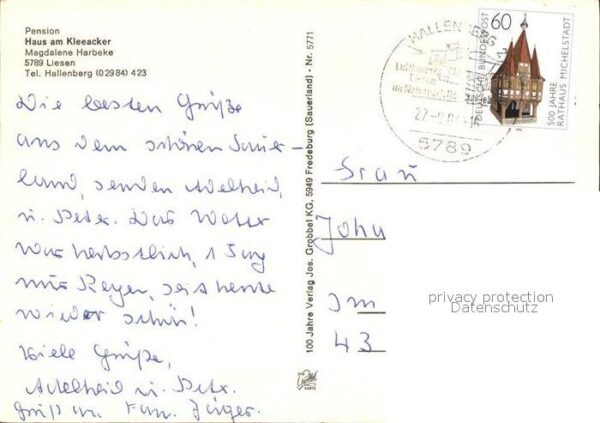 Pension
Haus am Kleeacker
Magdalene Harbeke
5789 Liesen
Tel. Hallenberg (0 29 84) 423
Die besten Grüße
aus dem schönen Sauer-
land, senden Adelheid
u. Peter. Das Wetter
war herbstlich, 1 Tag
nur Regen, seit heute
wieder schön!
Viele Grüße,
Adelheid u. Peter.
Gruß an Fam. Jünger.
100 Jahre Verlag Jos. Grobbel KG, 5949 Fredeburg (Sauerland) - Nr. 5771
HALLEN
Luftkurort
5789
60
DEUTSCHE BUNDESPOST
500 JAHRE
RATHAUS MICHELSTADT
Frau
John
Im
43
privacy protection
Datenschutz